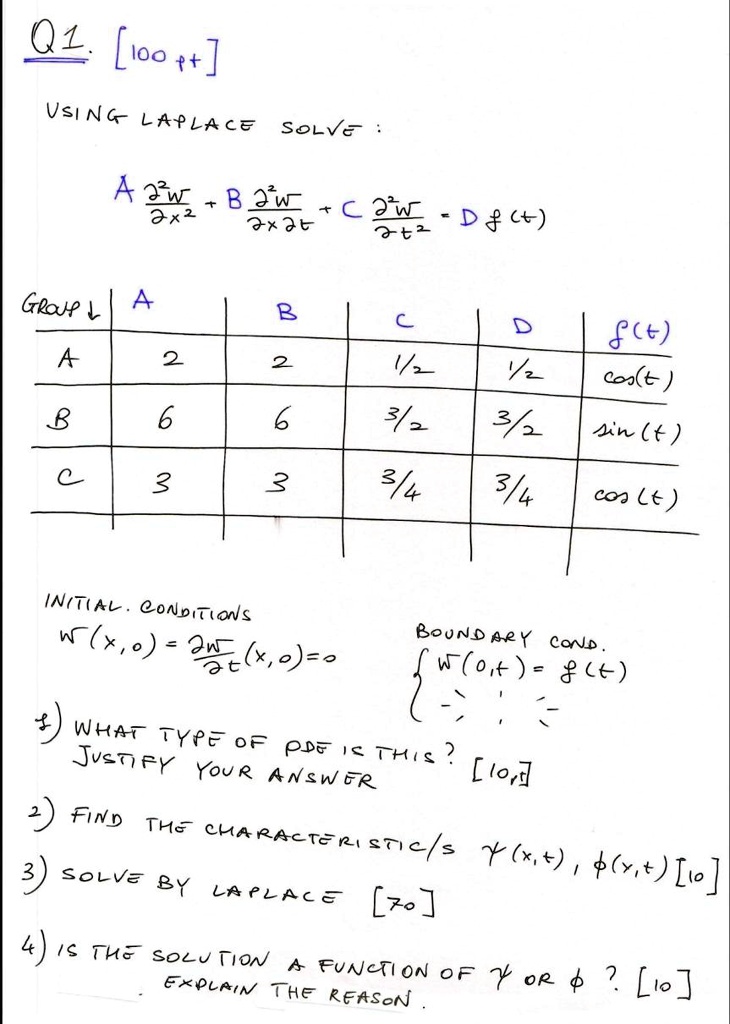 Q1. [100 pt]
USING LAPLACE SOLVE :
A ∂²w/∂x² + B ∂²w/∂x∂t + C ∂²w/∂t² = D f(t)
GROUP ↓ A B C D f(t)
A 2 2 1/2 1/2 cos(t)
B 6 6 3/2 3/2 sin(t)
C 3 3 3/4 3/4 cos(t)
INITIAL. CONDITIONS
w(x,0) = ∂w/∂t (x,0)=0
BOUNDARY COND.
{ w(0,t) = f(t)
1) WHAT TYPE OF PDE IS THIS? [10pt]
JUSTIFY YOUR ANSWER
2) FIND THE CHARACTERISTIC/S ψ(x,t), ϕ(x,t) [10]
3) SOLVE BY LAPLACE [70]
4) IS THE SOLUTION A FUNCTION OF ψ OR ϕ ? [10]
EXPLAIN THE REASON.